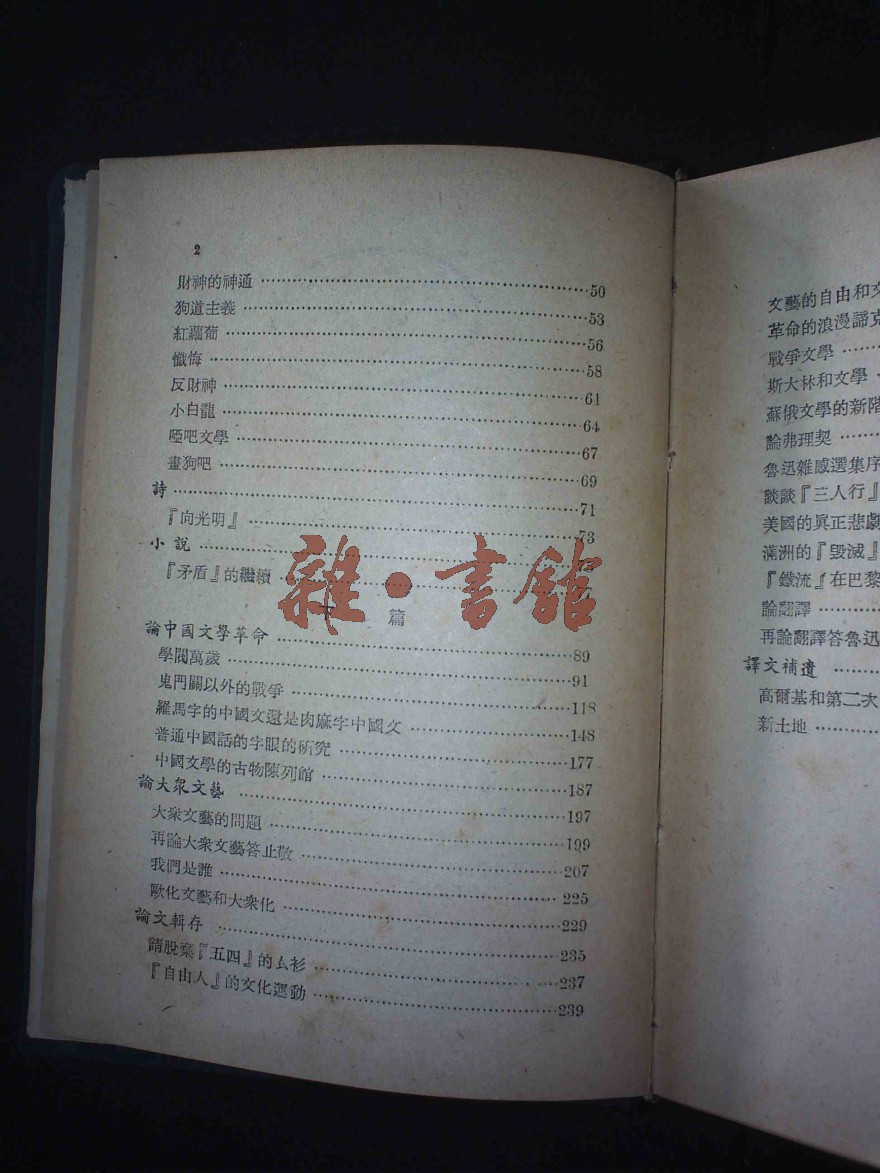 2
財神的神通 50
狗道主義 53
紅蘿蔔 56
懺悔 58
反財神 61
小白龍 64
啞吧文學 67
畫狗吧 69
詩 71
『向光明』 73
小說
『矛盾』的繼續
篇
雜·書館
論中國文學革命 89
學閥萬歲 91
鬼門關以外的戰爭 118
羅馬字的中國文還是肉麻字中國文 148
普通中國話的字眼的研究 177
中國文學的古物陳列館 187
論大衆文藝 197
大衆文藝的問題 199
再論大衆文藝答止敬 207
我們是誰 225
歐化文藝和大衆化 229
論文輯存 235
請脫棄『五四』的衣衫 237
『自由人』的文化運動 239
文藝的自由和文
革命的浪漫諦克
戰爭文學
斯大林和文學
蘇俄文學的新階
論弗理契
魯迅雜感選集序
談談『三人行』
美國的眞正悲劇
滿洲的『毀滅』
『鐵流』在巴黎
論翻譯
再論翻譯答魯迅
譯文補遺
高爾基和第二次
新土地